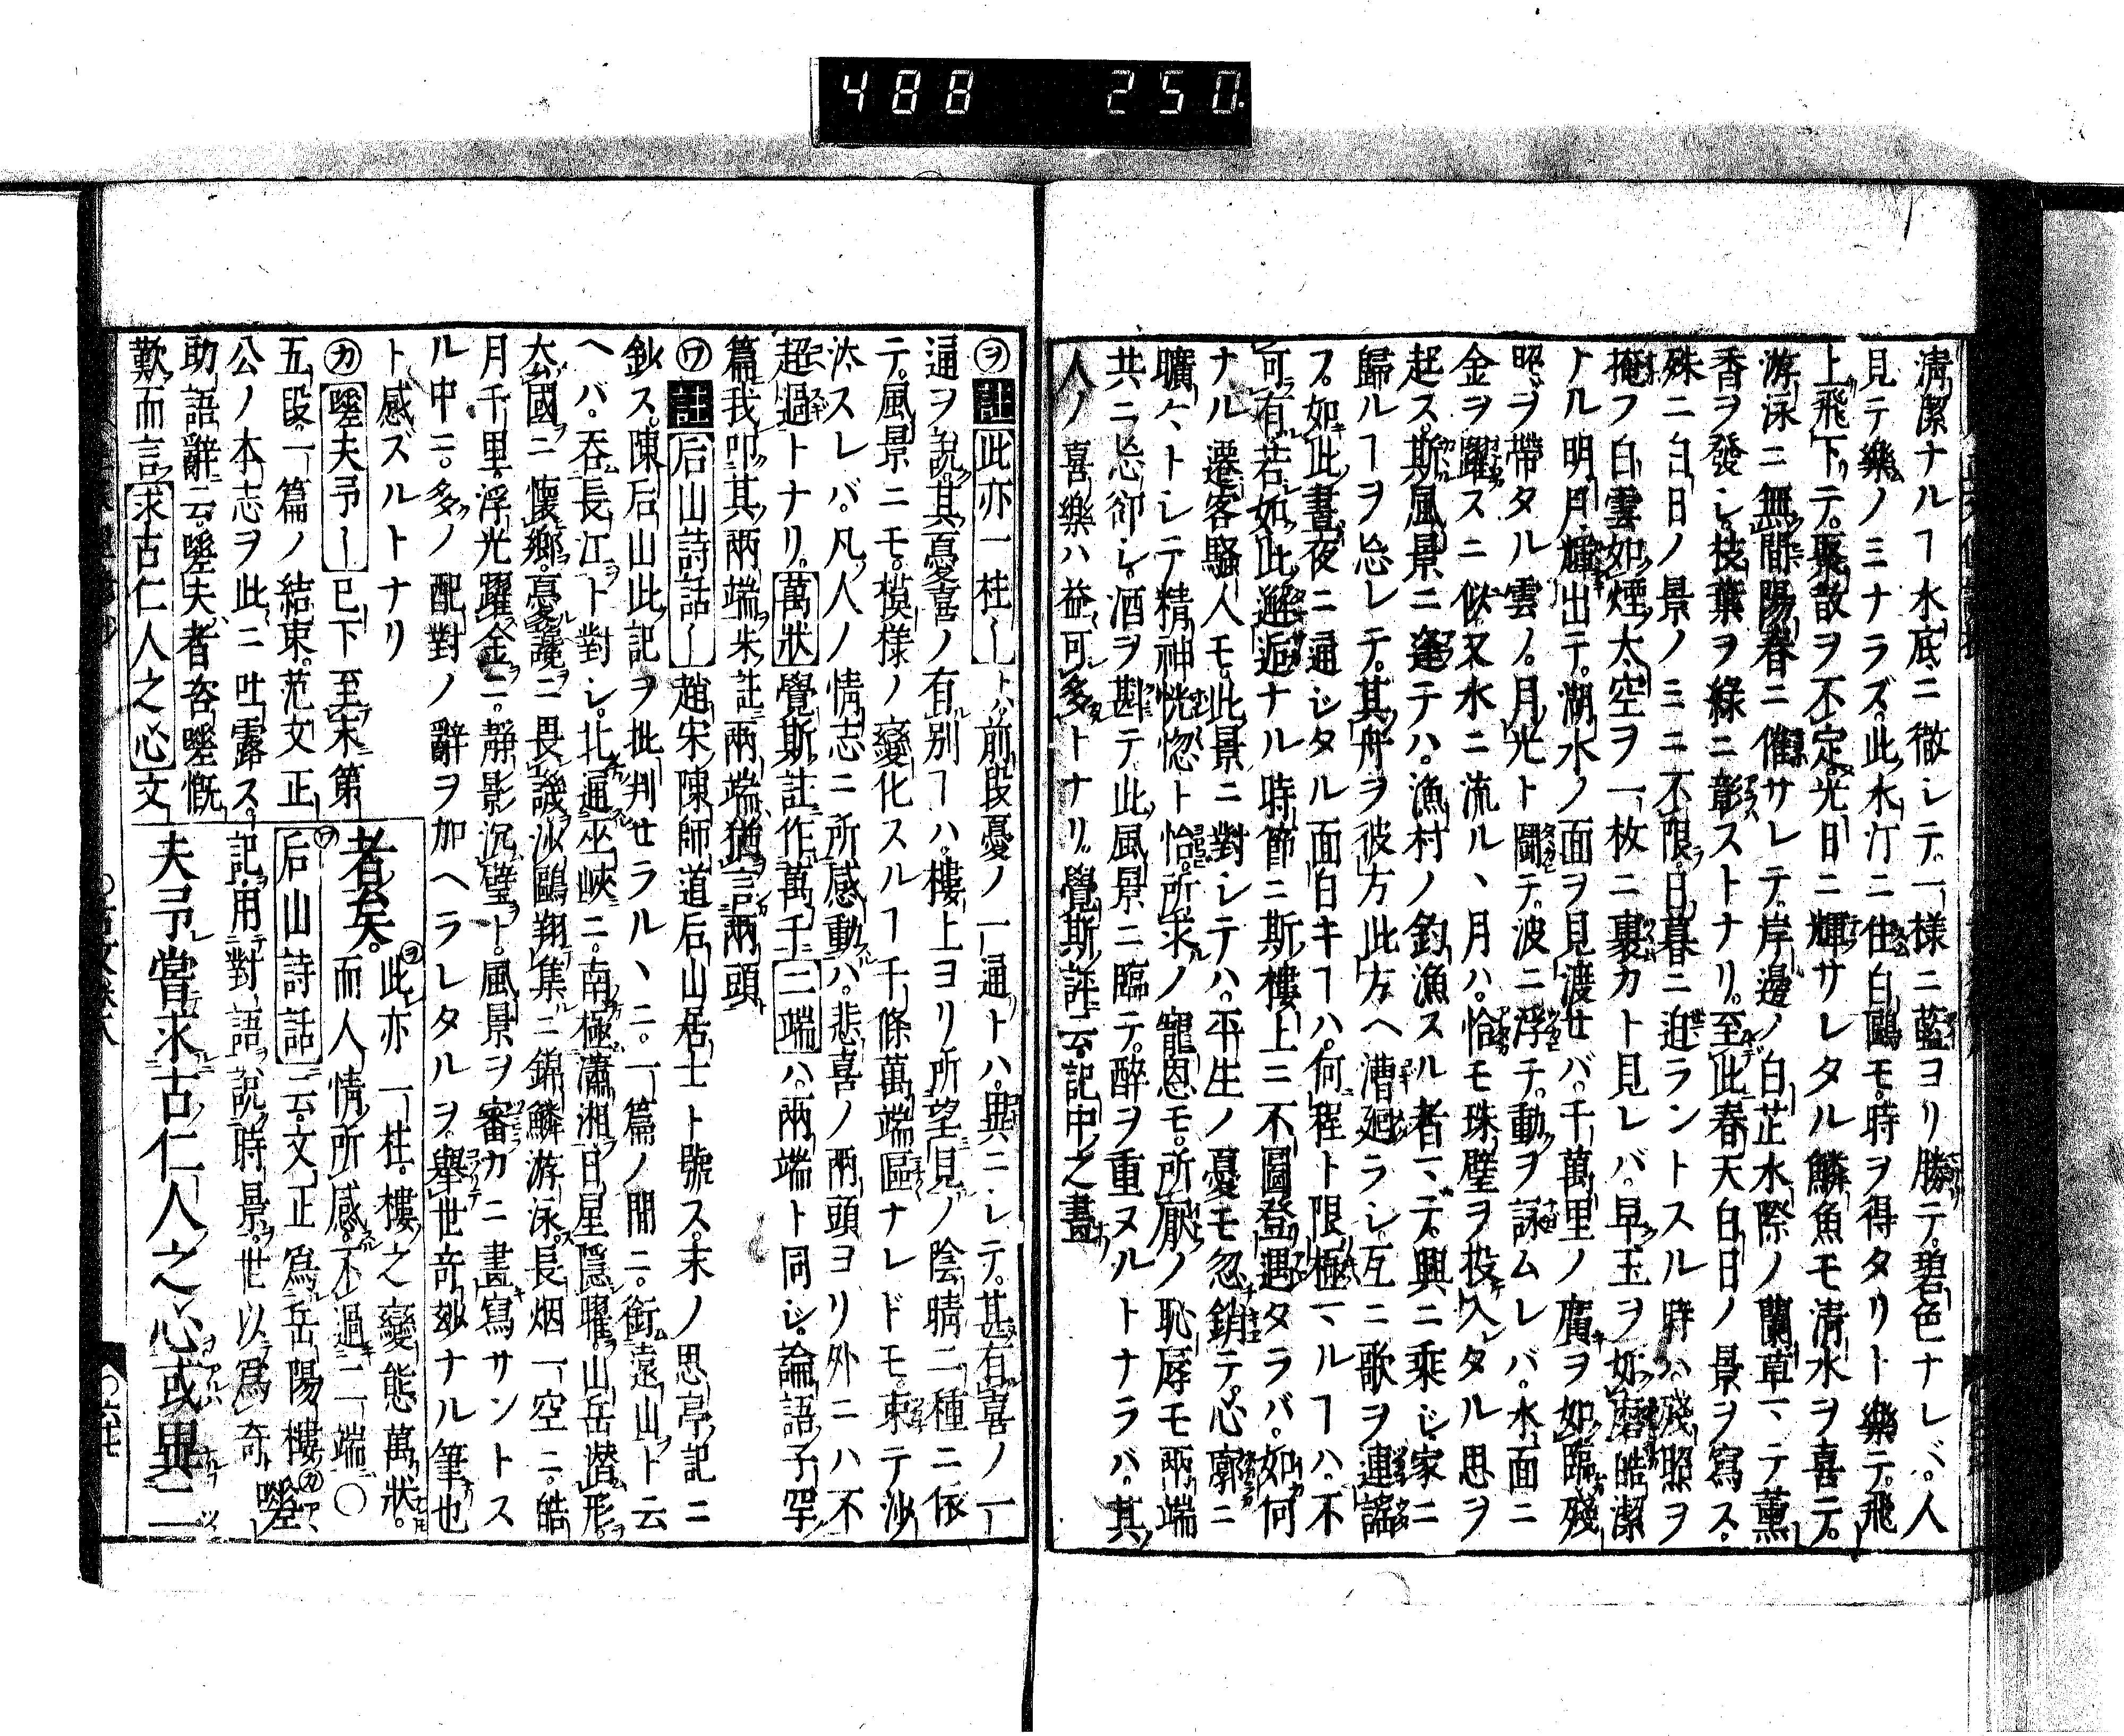 488 250
淸潔ナルヿ水底ニ徹レテ一樣ニ藍ヨリ勝テ碧色ナレバ人
見テ樂ノミナラズ此水汀ニ住白鷗モ時ヲ得タリト樂テ飛
上飛下テ聚散ヲ不定光日ニ輝サレタル鱗魚モ淸水ヲ喜テ
游泳ニ無間陽春ニ催サレテ岸邊ノ白芷水際ノ蘭草マテ薰
香ヲ發レ枝葉ヲ綠ニ彰ストナリ至此春天白日ノ景ヲ寫ス
殊ニ白日ノ景ノミニ不限日暮ニ迫ラントスル時ハ殘照ヲ
掩フ白雲如煙大空ヲ一枚ニ裹カト見レバ早玉ヲ如磨皓潔
トル明月耀出テ湖水ノ面ヲ見渡セバ千萬里ノ廣ヲ如臨殘
照ヲ帶タル雲ノ月光ト鬪テ波ニ浮テ動ヲ詠ムレバ水面ニ
金ヲ躍スニ似又水ニ流ルヽ月ハ恰モ珠璧ヲ投入タル思ヲ
起ス斯風景ニ逢テハ漁村ノ釣漁スル者マデ興ニ乘ジ家ニ
歸ルヿヲ忘レテ其舟ヲ彼方此方ヘ漕廻ラレ互ニ歌ヲ連謠
フ如此晝夜ニ通ジタル面白キヿハ何程ト限極マルヿハ不
可有若如此邂逅ナル時節ニ斯樓上ニ不圖登遇タラバ如何
ナル遷客騷人モ此景ニ對レテハ平生ノ憂モ忽銷テ心廓ニ
曠々トレテ精神恍惚ト怡所求ノ寵恩モ所厭ノ恥辱モ兩端
共ニ忘卻レ酒ヲ斟テ此風景ニ臨テ醉ヲ重ヌルトナラバ其
人ノ喜樂ハ益可多トナリ覺斯評云記中之畫
㋾註此亦一柱ー トハ前段憂ノ一通トハ異ニレテ甚有喜ノ一
通ヲ說其憂喜ノ有別ヿハ樓上ヨリ所望見ノ陰晴二種ニ依
テ風景ニモ模樣ノ變化スルヿ千條萬端區ナレドモ束テ沙
汰スレバ凡人ノ情志ニ所感動ハ悲喜ノ兩頭ヨリ外ニハ不
超過トナリ萬狀覺斯註作萬千二端ハ兩端ト同ジ論語子罕
篇我叩其兩端朱註兩端猶言兩頭
㋻註后山詩話ー趙宋陳師道后山居士ト號ス末ノ思亭記ニ
鈔ス陳后山此記ヲ批判セラルヽニ一篇ノ間ニ銜遠山ト云
ヘバ呑長江ト對レ北通巫峽ニ南極瀟湘日星隱曜山岳潛形
去國ニ懷鄕憂讒ニ畏譏沙鷗翔集ニ錦鱗游泳長烟一空ニ皓
月千里浮光躍金ニ靜影沉璧ト風景ヲ審カニ書寫サントス
ル中ニ多ノ配對ノ辭ヲ加ヘラレタルヲ擧世奇妙ナル筆也
ト感ズルトナリ
㋕嗟夫予ー 已下至末第
五段一篇ノ結束范文正
公ノ本志ヲ此ニ吐露ス
助語辭云嗟夫者咨嗟慨
歎而言求古仁人之心文
者矣。㋾此亦一柱樓之變態萬狀。
而人情所感。不過二端〇
㋻后山詩話云文正爲岳陽樓
記用對語說時景世以爲奇㋕嗟
夫予嘗求古仁人之心或異二